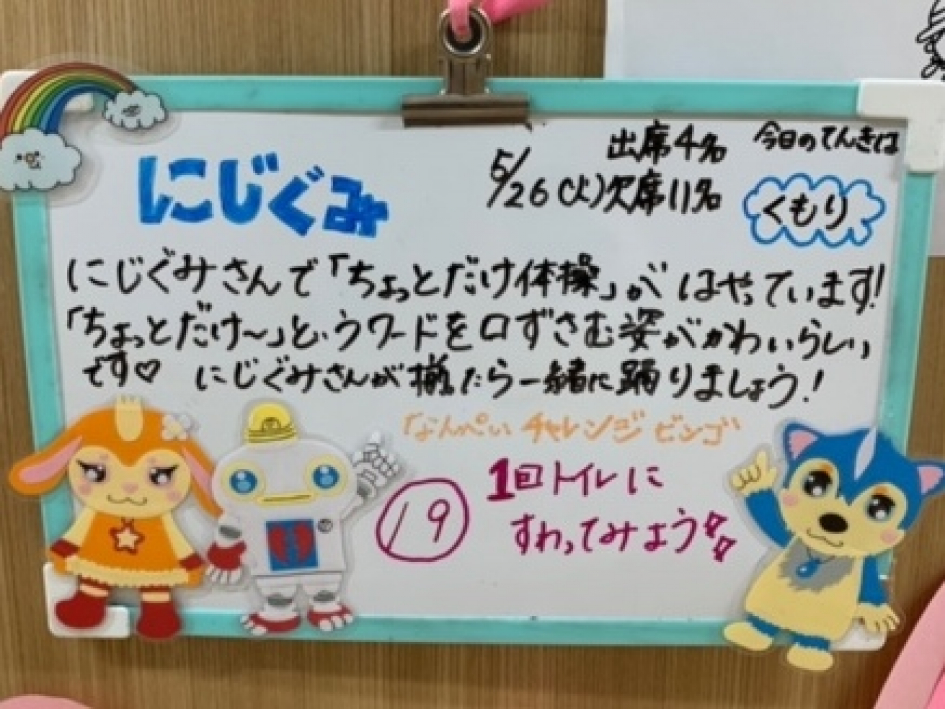 にじぐみ
5/26(火)
出席4名
欠席11名
今日のてんきは
くもり
にじぐみさんで「ちょっとだけ体操」がはやっています!
「ちょっとだけ〜」というワードを口ずさむ姿がかわいらしい
です♡ にじぐみさんが揃たら一緒に踊りましょう!
「なんぺいチャレンジビンゴ
19
1回トイレに
すわってみよう!!